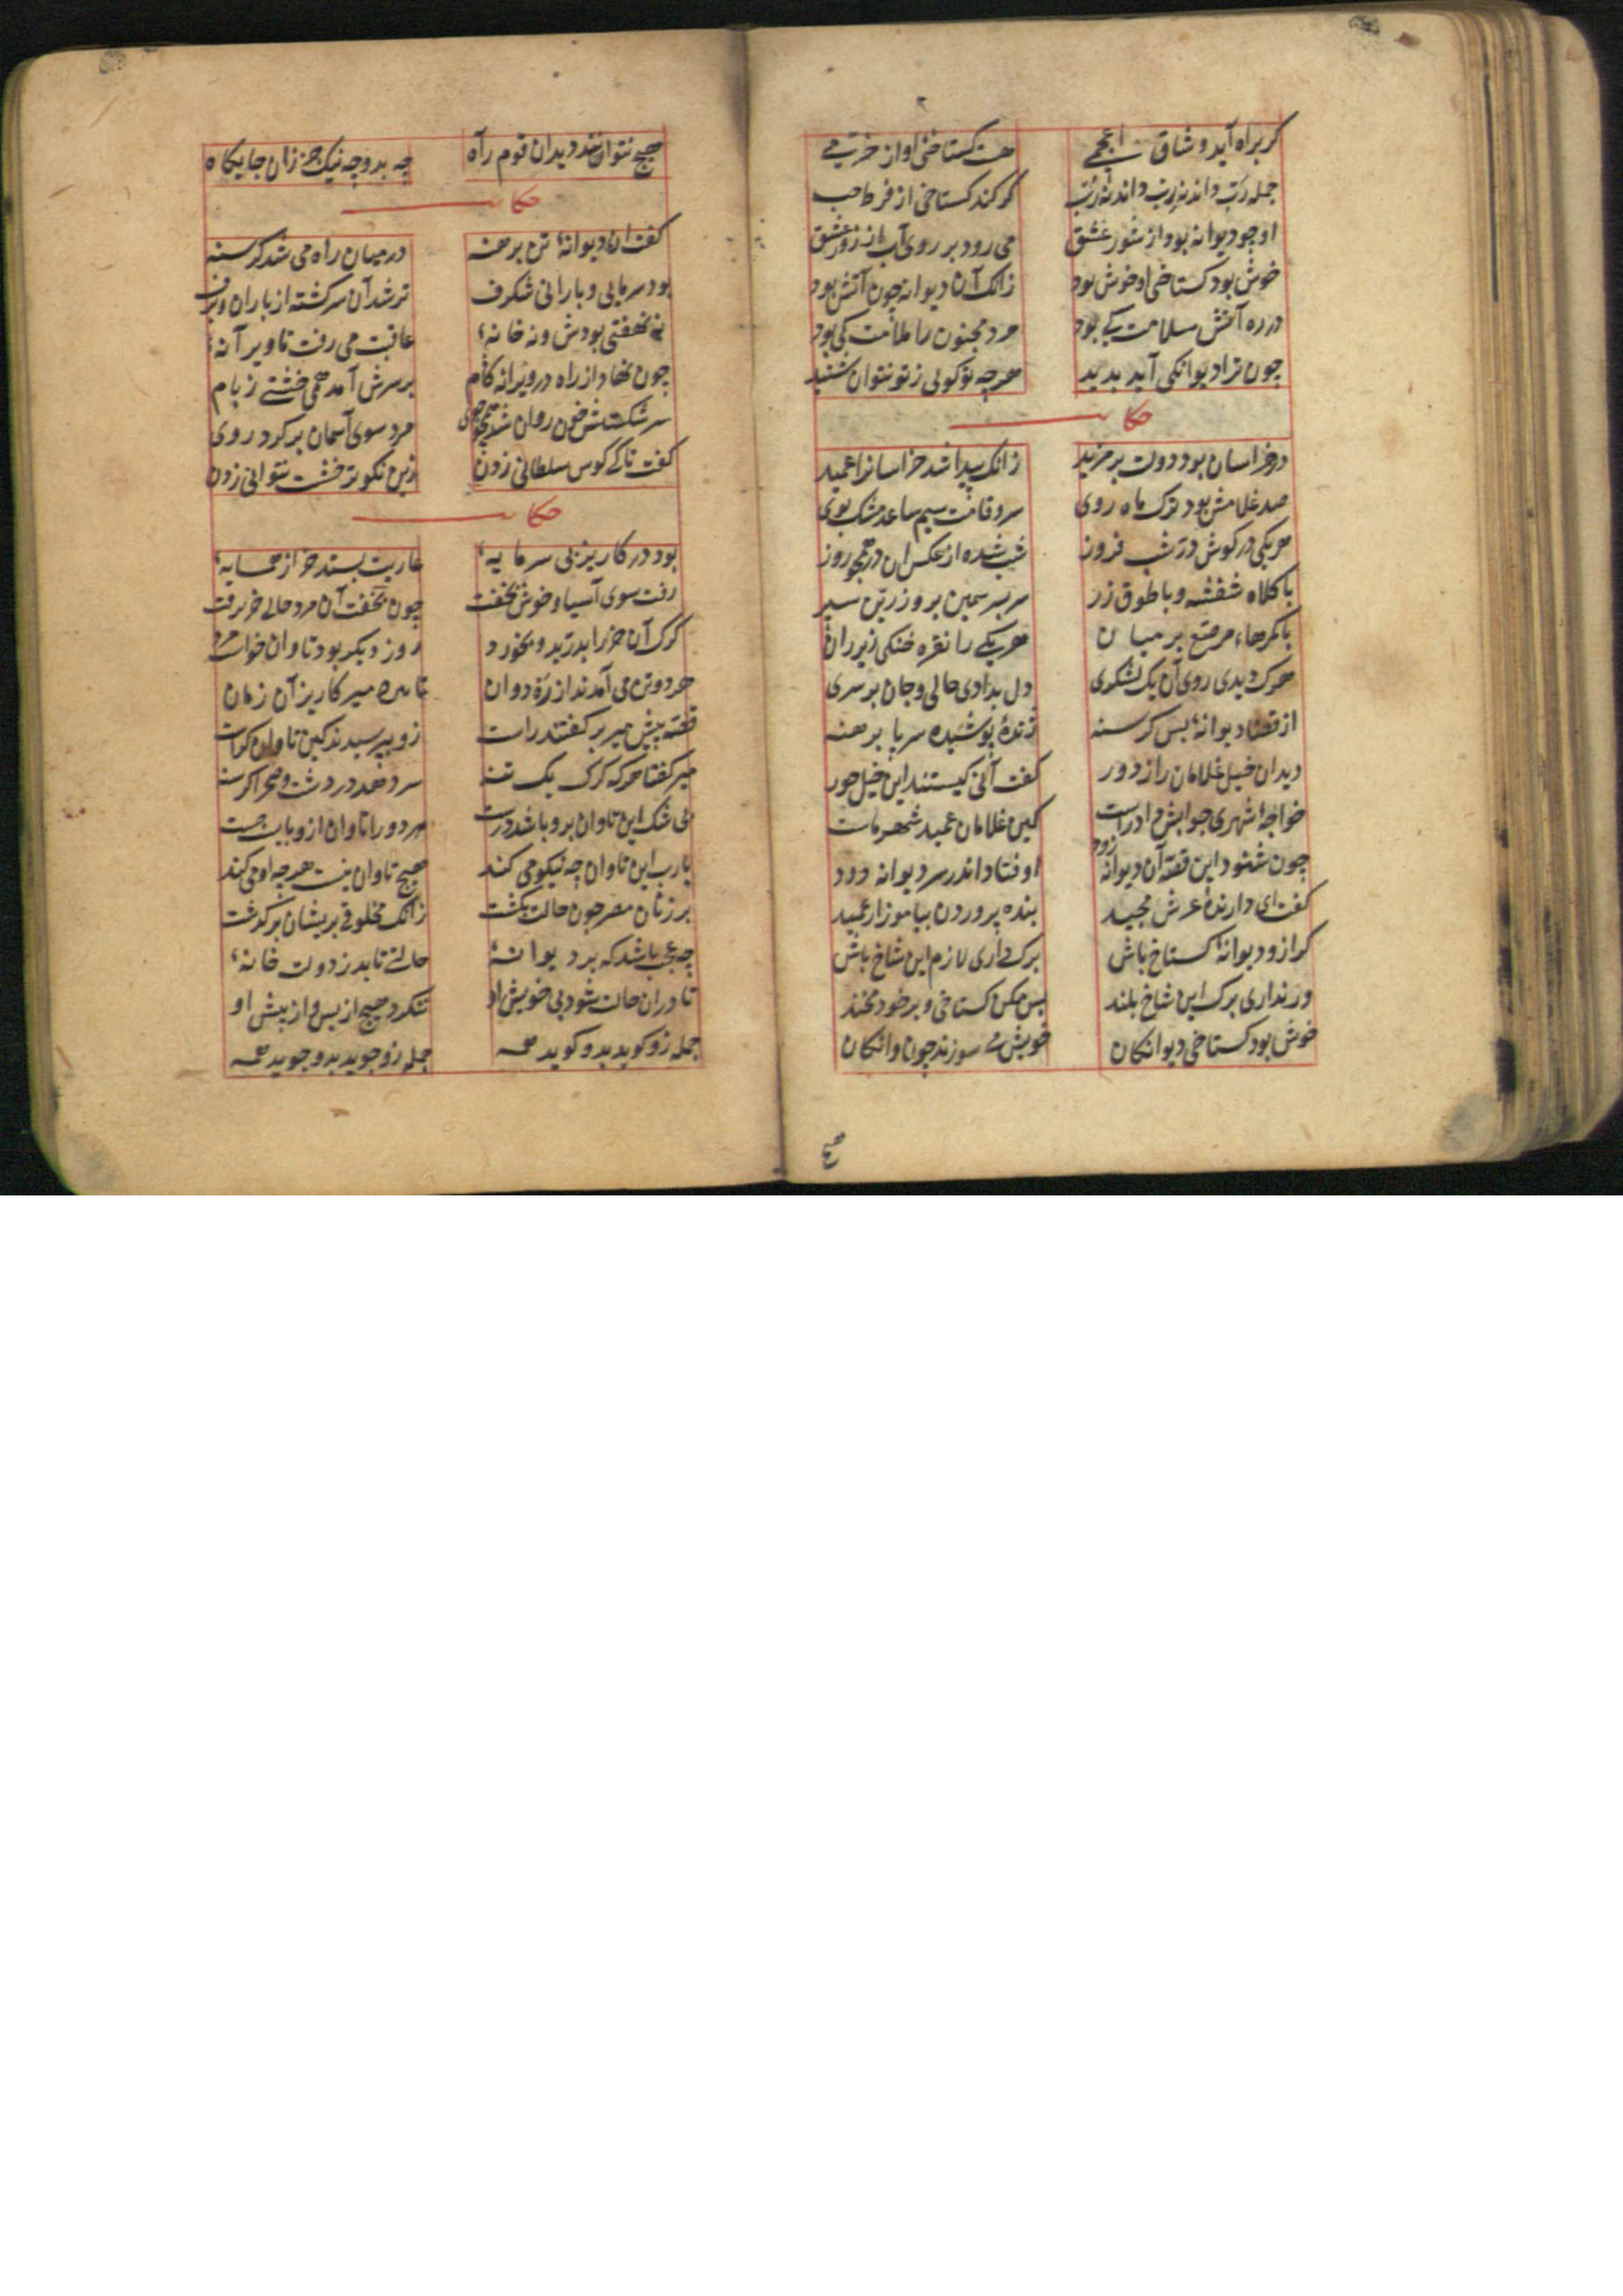 کر براه آید وشاق اعجمی هست کستاخی او از خرمی
جمله رب داند نه رب داند نه رب کر کند کستاخی از فرط حب
او چو دیوانه بود از شور عشق می رود بر روی آب از زور عشق
خوش بود کستاخی او خوش بود زانک آن دیوانه چون آتش بود
در ره آتش سلامت کی بود مرد مجنون را ملامت کی بود
چون ترا دیوانکی آید بدید هرچه تو کوئی ز تو نتوان شنید
حکایت
در خراسان بود دولت بر مزید زانک پیدا شد خراسانرا عمید
صد غلامش بود ترک ماه روی سرو قامت سیم ساعد مشک بوی
هر یکی در کوش دری شب فروز شب شده از عکس آن در همچو روز
با کلاه شفشه و با طوق زر سر بسر سیمین بر و زرین سپر
با کمرهاء مرصع بر میان هر یکی را نقره خنکی زیر ران
هرک دیدی روی آن یک لشکری دل بدادی حالی و جان بر سری
از قضا دیوانهٔ بس کرسنه ژندهٔ پوشیده سر پا برهنه
دید آن خیل غلامان را ز دور کفت آنی کیستند این خیل حور
خواجهٔ شهری جوابش داد راست کین غلامان عمید شهر ماست
چون شنود این قصه آن دیوانه زود اوفتاد اندر سر دیوانه دود
کفت ای دارندهٔ عرش مجید بنده پروردن بیاموز از عمید
کر ازو دیوانهٔ کستاخ باش برک داری لازم این شاخ باش
ور نداری برک این شاخ بلند پس مکن کستاخی و بر خود مخند
خوش بود کستاخی دیوانکان خویش می سوزند چون پروانکان
هیچ
هیچ نتوانند دید آن قوم راه چه بد و چه نیک جز زان جایکاه
حکایت
کفت آن دیوانهٔ تن برهنه در میان راه می شد کرسنه
بود سرمایی و بارانی شکرف تر شد آن سرکشته از باران و برف
نه نهفتی بودش و نه خانهٔ عاقبت می رفت تا ویرانهٔ
چون نهاد از راه در ویرانه کام بر سرش آمد همی خشتی ز بام
سر شکستش خون روان شد همچو جوی مرد سوی آسمان بر کرد روی
کفت تا کی کوس سلطانی زدن زین نکوتر خشت نتوانی زدن
حکایت
بود در کاریز بی سرمایهٔ عاریت بستد خر از همسایهٔ
رفت سوی آسیا و خوش بخفت چون بخفت آن مرد حالی خر برفت
کرک آن خر را بدرید و بخورد روز دیکر بود تاوان خواست مرد
هر دو تن می آمدند از ره دوان تا بره میر کاریز آن زمان
قصه پیش میر بر کفتند راست زو بپرسیدند کین تاوان کراست
میر کفتا هرکه کرک یک تنه سر دهد در دشت و صحرا کرسنه
بی شک این تاوان برو باشد درست هر دو را تاوان ازو بایست جست
یارب این تاوان چه نیکو می کند هیچ تاوان نیست هر چه او می کند
بر زنان مصر چون حالت بکشت زانک مخلوقی بر یشان بر کذشت
چه عجب باشد که بر دیوانهٔ حالتی تابد ز دولت خانهٔ
تا در آن حالت شود بی خویش او ننکرد هیچ از پس و از پیش او
جمله زو کوید بدو کوید همه جمله زو جوید بدو جوید همه